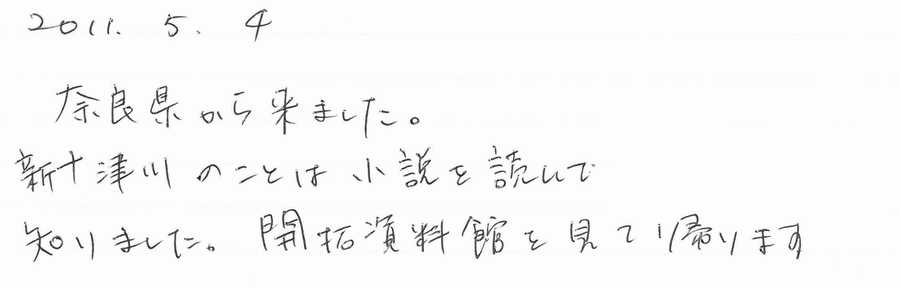 2011. 5. 4
奈良県から来ました。
新十津川のことは小説を読んで
知りました。開拓資料館を見て帰ります